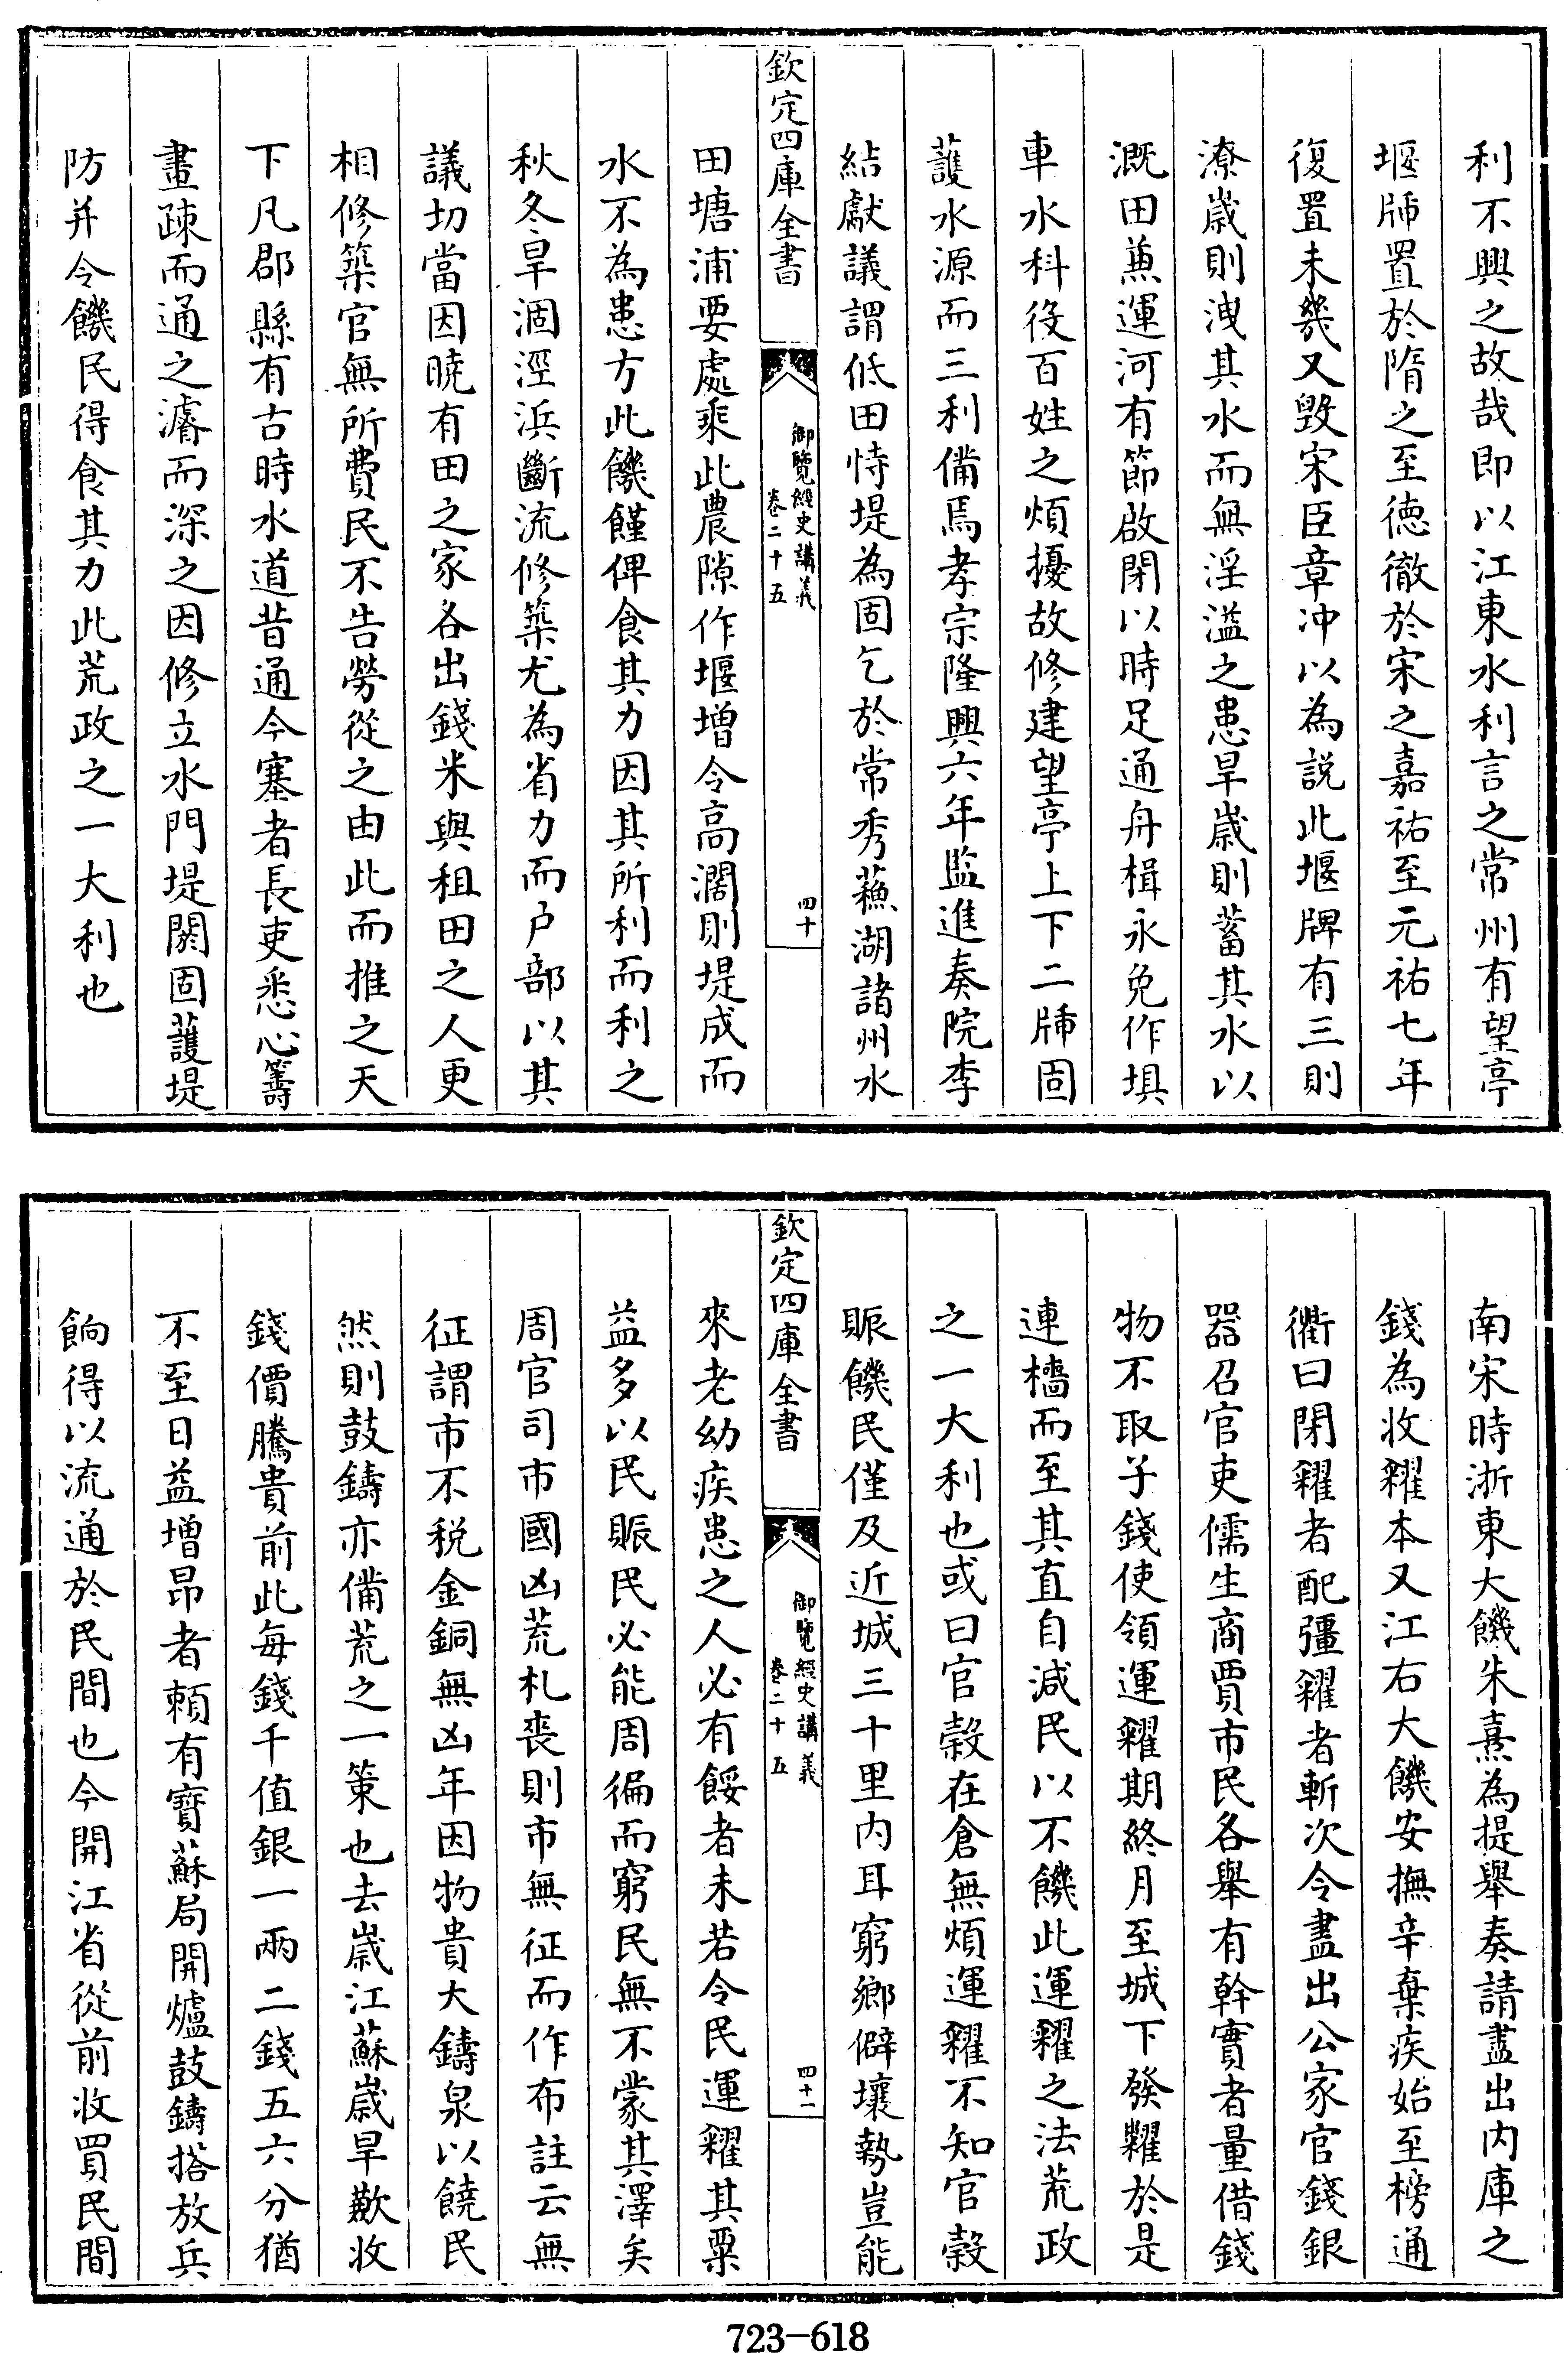 利不興之故哉即以江東水利言之常州有望亭
堰牐置於隋之至徳徹於宋之嘉祐至元祐七年
復置未幾又毀宋臣章冲以為説此堰牌有三則
潦嵗則洩其水而無淫溢之患旱嵗則蓄其水以
溉田兼運河有節啟閉以時足通舟楫永免作埧
車水科役百姓之煩擾故修建望亭上下二牐固
護水源而三利備焉孝宗隆興六年監進奏院李
結獻議謂低田恃堤為固乞於常秀蘓湖諸州水
欽定四庫全書
御覽經史講義
卷二十五
四十
田塘浦要處乘此農隙作堰增令高濶則堤成而
水不為患方此饑饉俾食其力因其所利而利之
秋冬旱涸涇浜斷流修築尤為省力而户部以其
議切當因曉有田之家各出錢米與租田之人更
相修築官無所費民不告勞從之由此而推之天
下凡郡縣有古時水道昔通今塞者長吏悉心籌
畫疎而通之濬而深之因修立水門堤閼固護堤
防并令饑民得食其力此荒政之一大利也
南宋時浙東大饑朱熹為提舉奏請盡出内庫之
錢為收糴本又江右大饑安撫辛棄疾始至榜通
衢曰閉糴者配彊糴者斬次令盡出公家官錢銀
器召官吏儒生商賈市民各舉有幹實者量借錢
物不取子錢使領運糴期終月至城下發糶於是
連檣而至其直自減民以不饑此運糴之法荒政
之一大利也或曰官榖在倉無煩運糴不知官榖
賑饑民僅及近城三十里内耳窮鄉僻壤勢豈能
欽定四庫全書
御覽經史講義
卷二十五
四十一
來老幼疾患之人必有餒者未若令民運糴其粟
益多以民賑民必能周徧而窮民無不蒙其澤矣
周官司市國凶荒札喪則市無征而作布註云無
征謂市不税金銅無凶年因物貴大鑄泉以饒民
然則鼓鑄亦備荒之一策也去嵗江蘇嵗旱歉收
錢價騰貴前此每錢千值銀一兩二錢五六分猶
不至日益增昂者頼有寳蘇局開爐鼓鑄搭放兵
餉得以流通於民間也今開江省從前收買民間
723-618